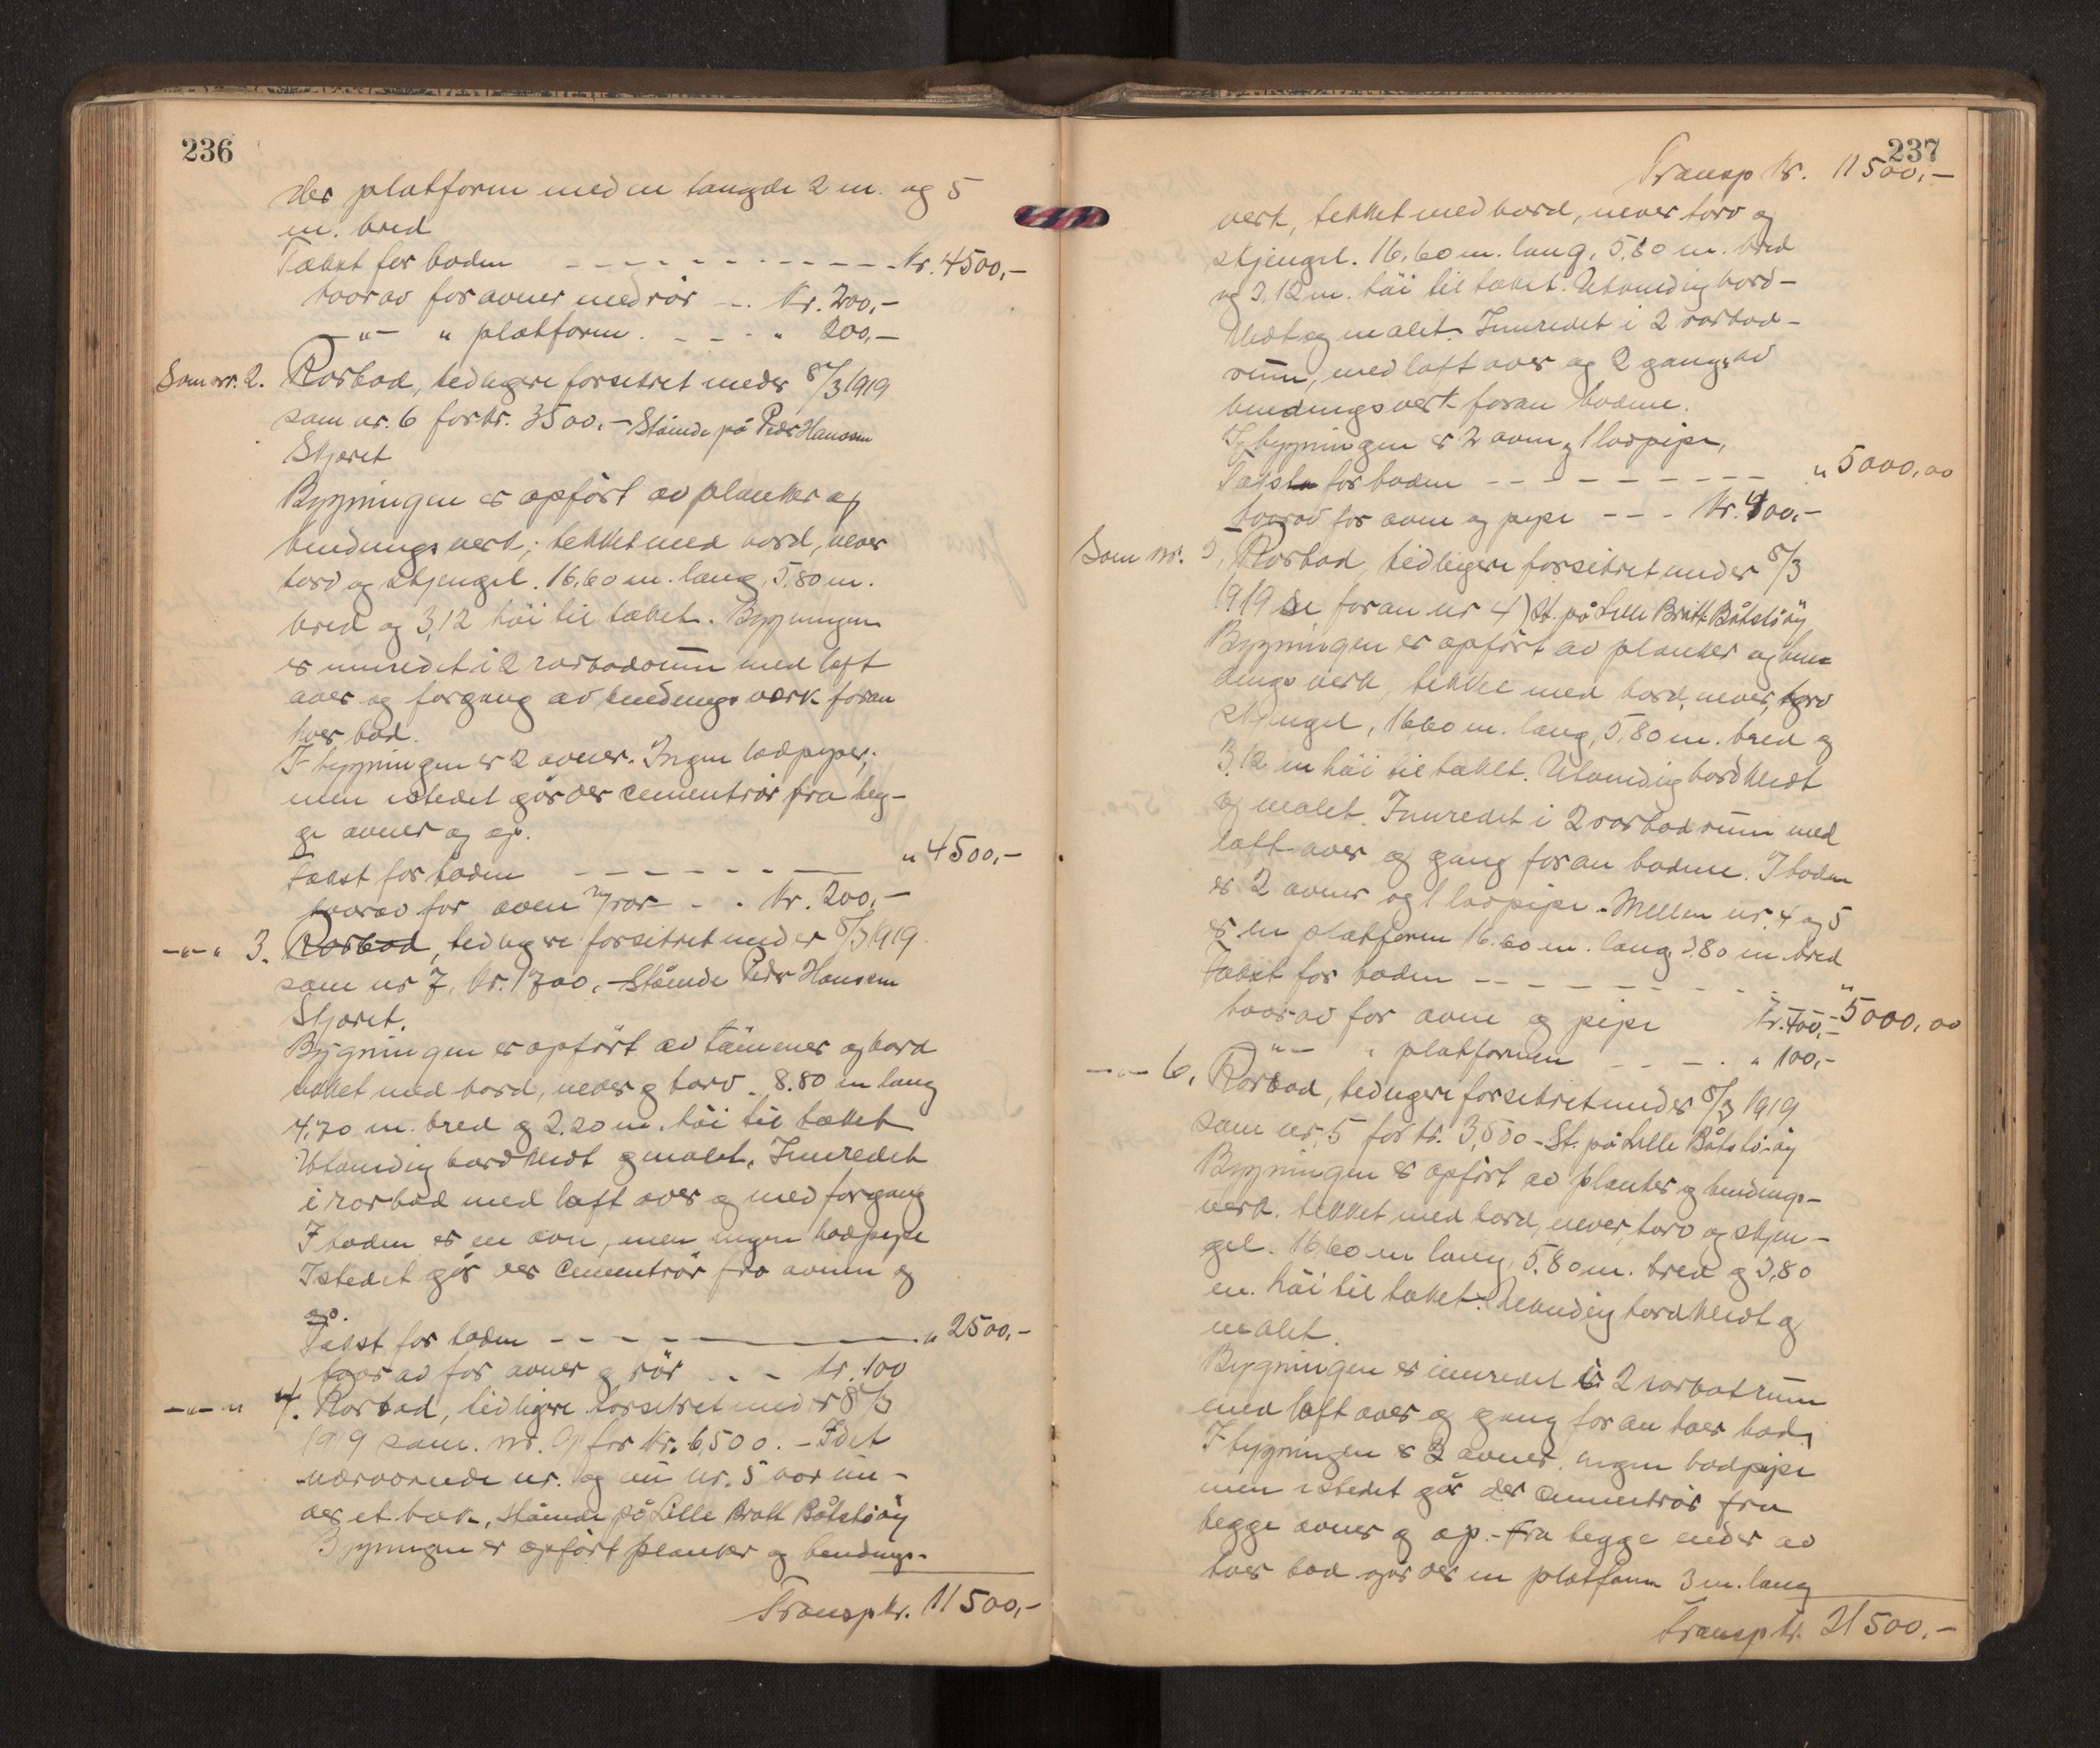 236
der platform med en længde 2 m. og 5
m. bred
Takst for boden - - - - - - - - - - Kr. 4500,-
hvorav for avner med rör - . Kr. 200,-
-"- " platform . - - - " 200,-
Som nr. 2. Rorbod, tidligere forsikret under 8/3 1919
som nr. 6 for kr. 3500.- Stående på Peder Hansen
Skjæret
Bygningen er opfört av planker og
bindingsverk, tækket med bord, never
torv og skjengel. 16,60 m. lang, 5,80 m.
bred og 3,12 höi til taket. Bygningen
er innredet i 2 rorbodrum med loft
over og forgang av bindingsverk foran
hver bod.
I bygningen er 2 ovner. Ingen bodpiper,
men istedet går der cementrör fra beg-
ge ovner og op.
Takst for boden - - - - - - - " 4500,-
hvorav for oven og rör - - . Kr. 200,-
-"- " 3. Rorbod, tidligere forsikret under 8/3 1919
som nr 7, Kr. 1700,- Stående Peder Hansen
Skjæret.
Bygningen er opfört av tömmer og bord
tækket med bord, never og torv. 8.80 m lang
4,70 m. bred og 2.20 m. höi til taket
Utvendig bordklædt og malet. Innredet
i rorbod med loft over og med forgang
I boden er en ovn, men ingen bodpipe
Istedet går der cementrör fra ovnen og
op.
Takst for boden - - - - " 2500,-
hvorav for ovner og rör . . - kr. 100
-"- " 4. Rorbod, tidligere forsikret under 8/3
1919 som. nr. for Kr. 6,500. - I det
nærværende nr. og nu nr. 5 var un-
der et tak, stående på Lille Bratt Båtstööy
Bygningen er opfört planker og bindings-
Transp kr. 11500,-
237
Transp kr. 11500,-
verk, tækket med bord, never torv og
skjengel. 16,60 m. lang, 5,80 m. bred
og 3,12 m. höi til taket. Utvendig bord-
klædt og malet. Innredet i 2 rorbod-
rum, med loft over og 2 ganger av
bindingsverk foran bodene.
I bygningen er 2 ovne, 1 bodpipe,
Takst for boden - - - - - - - - - " 5000,00
hvorav for ovne og pipe - - - Kr. 400,-
Som nr. 5, Rorbod, tidligere forsikret under 8/3
1919 se foran nr 4) St. på Lille Bratt Båtstööy
Bygningen er opfört av planker og bin-
dingsverk, tækket med bord, never, torv
skjengel, 1660 m. lang, 5,80 m. bred og
3,12 m höi til taket. Utvendig bordklædt
og malet. Innredet i 2 rorbodrum med
loft over og gang foran bodene. I boden
er 2 ovner og 1 bodpipe. Mellem nr. 4 og 5
er en platform 16.60 m. lang, 3.80 m bred
Takst for boden - - - - - - - - - " 5000,00
hvorav for ovne og pipe Kr. 400,-
-"- " platformen - - - . " 100,-
-"- 6, Rorbod, tidligere forsikret under 8/3 1919
som nr. 5 for kr. 3,500 - St. på Lille Båtstööy
Bygningen er opfört av planker og bindings-
verk. tækket med bord, never, torv og skjen-
gel. 16,60 m lang, 5,80 m. bred og 3,80
m. höi til taket. Utvendig bordklædt og
malet.
Bygningen er innredet i 2 rorbotrum
med loft over og gang foran hver bod.
I bygningen er 2 ovner. ingen bodpipe
men istedet går der cementrör fra
begge ovner og op. - Fra begge ender av
hver bod går der en platform 3 m. lang
Transp kr. 21500.-